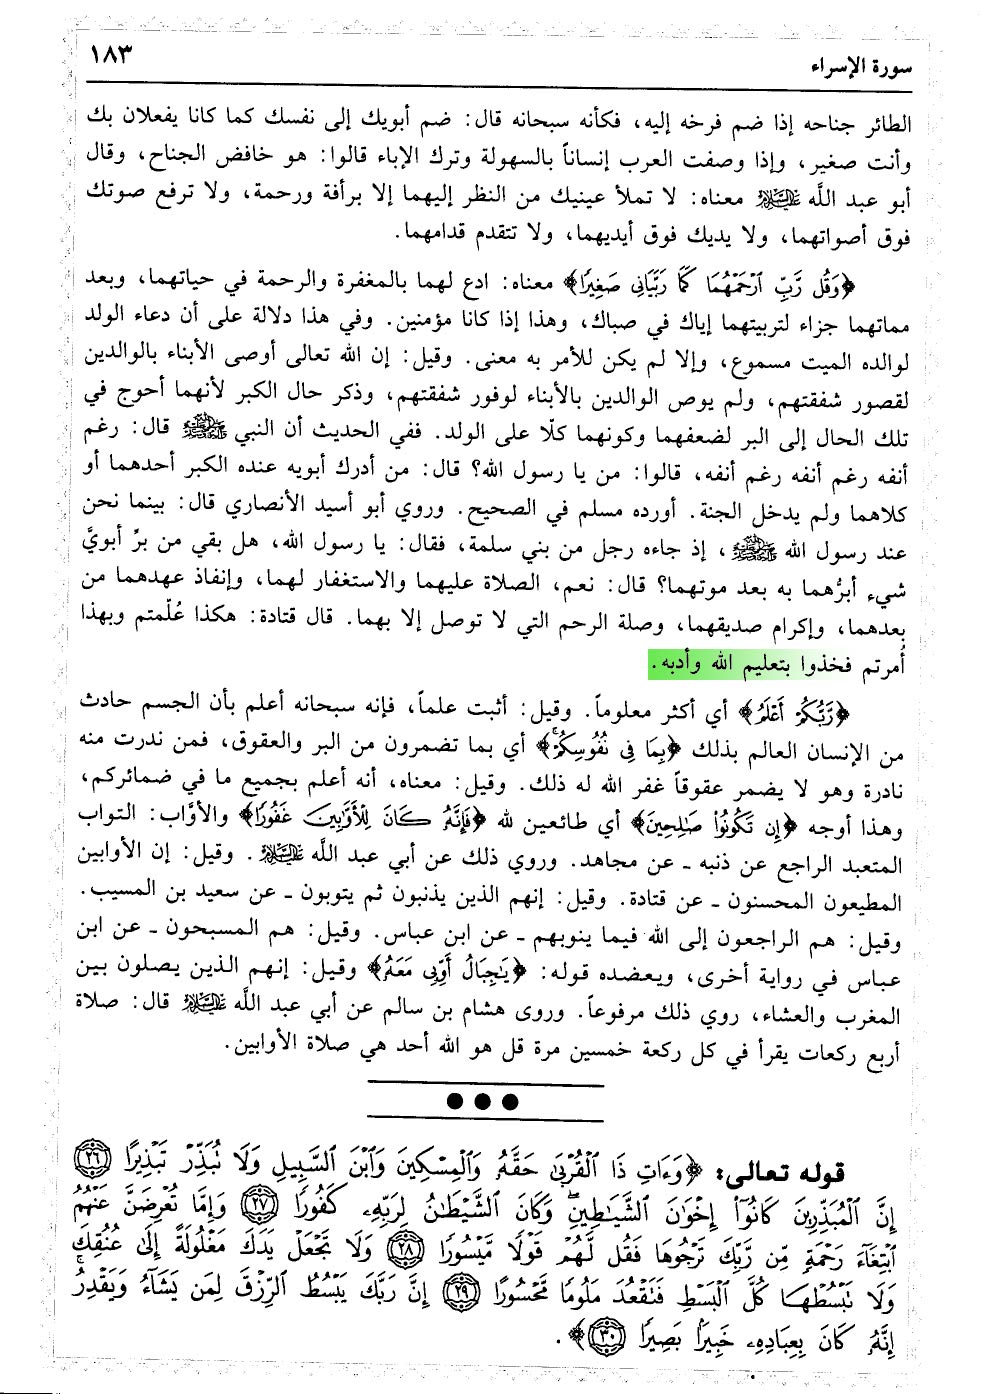 سورة الإسراء ١٨٣
الطائر جناحه إذا ضم فرخه إليه، فكأنه سبحانه قال: ضم أبويك إلى نفسك كما كانا يفعلان بك
وأنت صغير، وإذا وصفت العرب إنساناً بالسهولة وترك الإباء قالوا: هو خافض الجناح، وقال
أبو عبد اللَّه عليه السلام معناه: لا تملأ عينيك من النظر إليهما إلا برأفة ورحمة، ولا ترفع صوتك
فوق أصواتهما، ولا يديك فوق أيديهما، ولا تتقدم قدامهما.
﴿وَقُل رَّبِّ ٱرْحَمْهُمَا كَمَا رَبَّيَانِى صَغِيرًا﴾ معناه: ادع لهما بالمغفرة والرحمة في حياتهما، وبعد
مماتهما جزاء لتربيتهما إياك في صباك، وهذا إذا كانا مؤمنين. وفي هذا دلالة على أن دعاء الولد
لوالده الميت مسموع، وإلا لم يكن للأمر به معنى. وقيل: إن الله تعالى أوصى الأبناء بالوالدين
لقصور شفقتهم، ولم يوص الوالدين بالأبناء لوفور شفقتهم، وذكر حال الكبر لأنهما أحوج في
تلك الحال إلى البر لضعفهما وكونهما كلّا على الولد. ففي الحديث أن النبي ﷺ قال: رغم
أنفه رغم أنفه رغم أنفه، قالوا: من يا رسول الله؟ قال: من أدرك أبويه عنده الكبر أحدهما أو
كلاهما ولم يدخل الجنة. أورده مسلم في الصحيح. وروي أبو أسيد الأنصاري قال: بينما نحن
عند رسول الله ﷺ، إذ جاءه رجل من بني سلمة، فقال: يا رسول الله، هل بقي من برِّ أبويَّ
شيء أبرُّهما به بعد موتهما؟ قال: نعم، الصلاة عليهما والاستغفار لهما، وإنفاذ عهدهما من
بعدهما، وإكرام صديقهما، وصلة الرحم التي لا توصل إلا بهما. قال قتادة: هكذا عُلّمتم وبهذا
أُمرتم فخذوا بتعليم الله وأدبه.
﴿رَّبُّكُمْ أَعْلَمُ﴾ أي أكثر معلوماً. وقيل: أثبت علماً، فإنه سبحانه أعلم بأن الجسم حادث
من الإنسان العالم بذلك ﴿بِمَا فِى نُفُوسِكُمْ﴾ أي بما تضمرون من البر والعقوق، فمن ندرت منه
نادرة وهو لا يضمر عقوقاً غفر الله له ذلك. وقيل: معناه، أنه أعلم بجميع ما في ضمائركم،
وهذا أوجه ﴿إِن تَكُونُوا۟ صَٰلِحِينَ﴾ أي طائعين لله ﴿فَإِنَّهُۥ كَانَ لِلْأَوَّٰبِينَ غَفُورًا﴾ والأوَّاب: التواب
المتعبد الراجع عن ذنبه ـ عن مجاهد. وروي ذلك عن أبي عبد اللَّه عليه السلام. وقيل: إن الأوابين
المطيعون المحسنون ـ عن قتادة. وقيل: إنهم الذين يذنبون ثم يتوبون ـ عن سعيد بن المسيب.
وقيل: هم الراجعون إلى الله فيما ينوبهم ـ عن ابن عباس. وقيل: هم المسبحون ـ عن ابن
عباس في رواية أخرى، ويعضده قوله: ﴿يَٰجِبَالُ أَوِّبِى مَعَهُۥ﴾ وقيل: إنهم الذين يصلون بين
المغرب والعشاء، روي ذلك مرفوعاً. وروى هشام بن سالم عن أبي عبد اللَّه عليه السلام قال: صلاة
أربع ركعات يقرأ في كل ركعة خمسين مرة قل هو الله أحد هي صلاة الأوابين.
قوله تعالى: ﴿وَءَاتِ ذَا ٱلْقُرْبَىٰ حَقَّهُۥ وَٱلْمِسْكِينَ وَٱبْنَ ٱلسَّبِيلِ وَلَا تُبَذِّرْ تَبْذِيرًا ٢٦
إِنَّ ٱلْمُبَذِّرِينَ كَانُوٓا۟ إِخْوَٰنَ ٱلشَّيَٰطِينِ ۖ وَكَانَ ٱلشَّيْطَٰنُ لِرَبِّهِۦ كَفُورًا ٢٧ وَإِمَّا تُعْرِضَنَّ عَنْهُمُ
ٱبْتِغَآءَ رَحْمَةٍ مِّن رَّبِّكَ تَرْجُوهَا فَقُل لَّهُمْ قَوْلًا مَّيْسُورًا ٢٨ وَلَا تَجْعَلْ يَدَكَ مَغْلُولَةً إِلَىٰ عُنُقِكَ
وَلَا تَبْسُطْهَا كُلَّ ٱلْبَسْطِ فَتَقْعُدَ مَلُومًا مَّحْسُورًا ٢٩ إِنَّ رَبَّكَ يَبْسُطُ ٱلرِّزْقَ لِمَن يَشَآءُ وَيَقْدِرُ ۚ
إِنَّهُۥ كَانَ بِعِبَادِهِۦ خَبِيرًۢا بَصِيرًا ٣٠﴾.